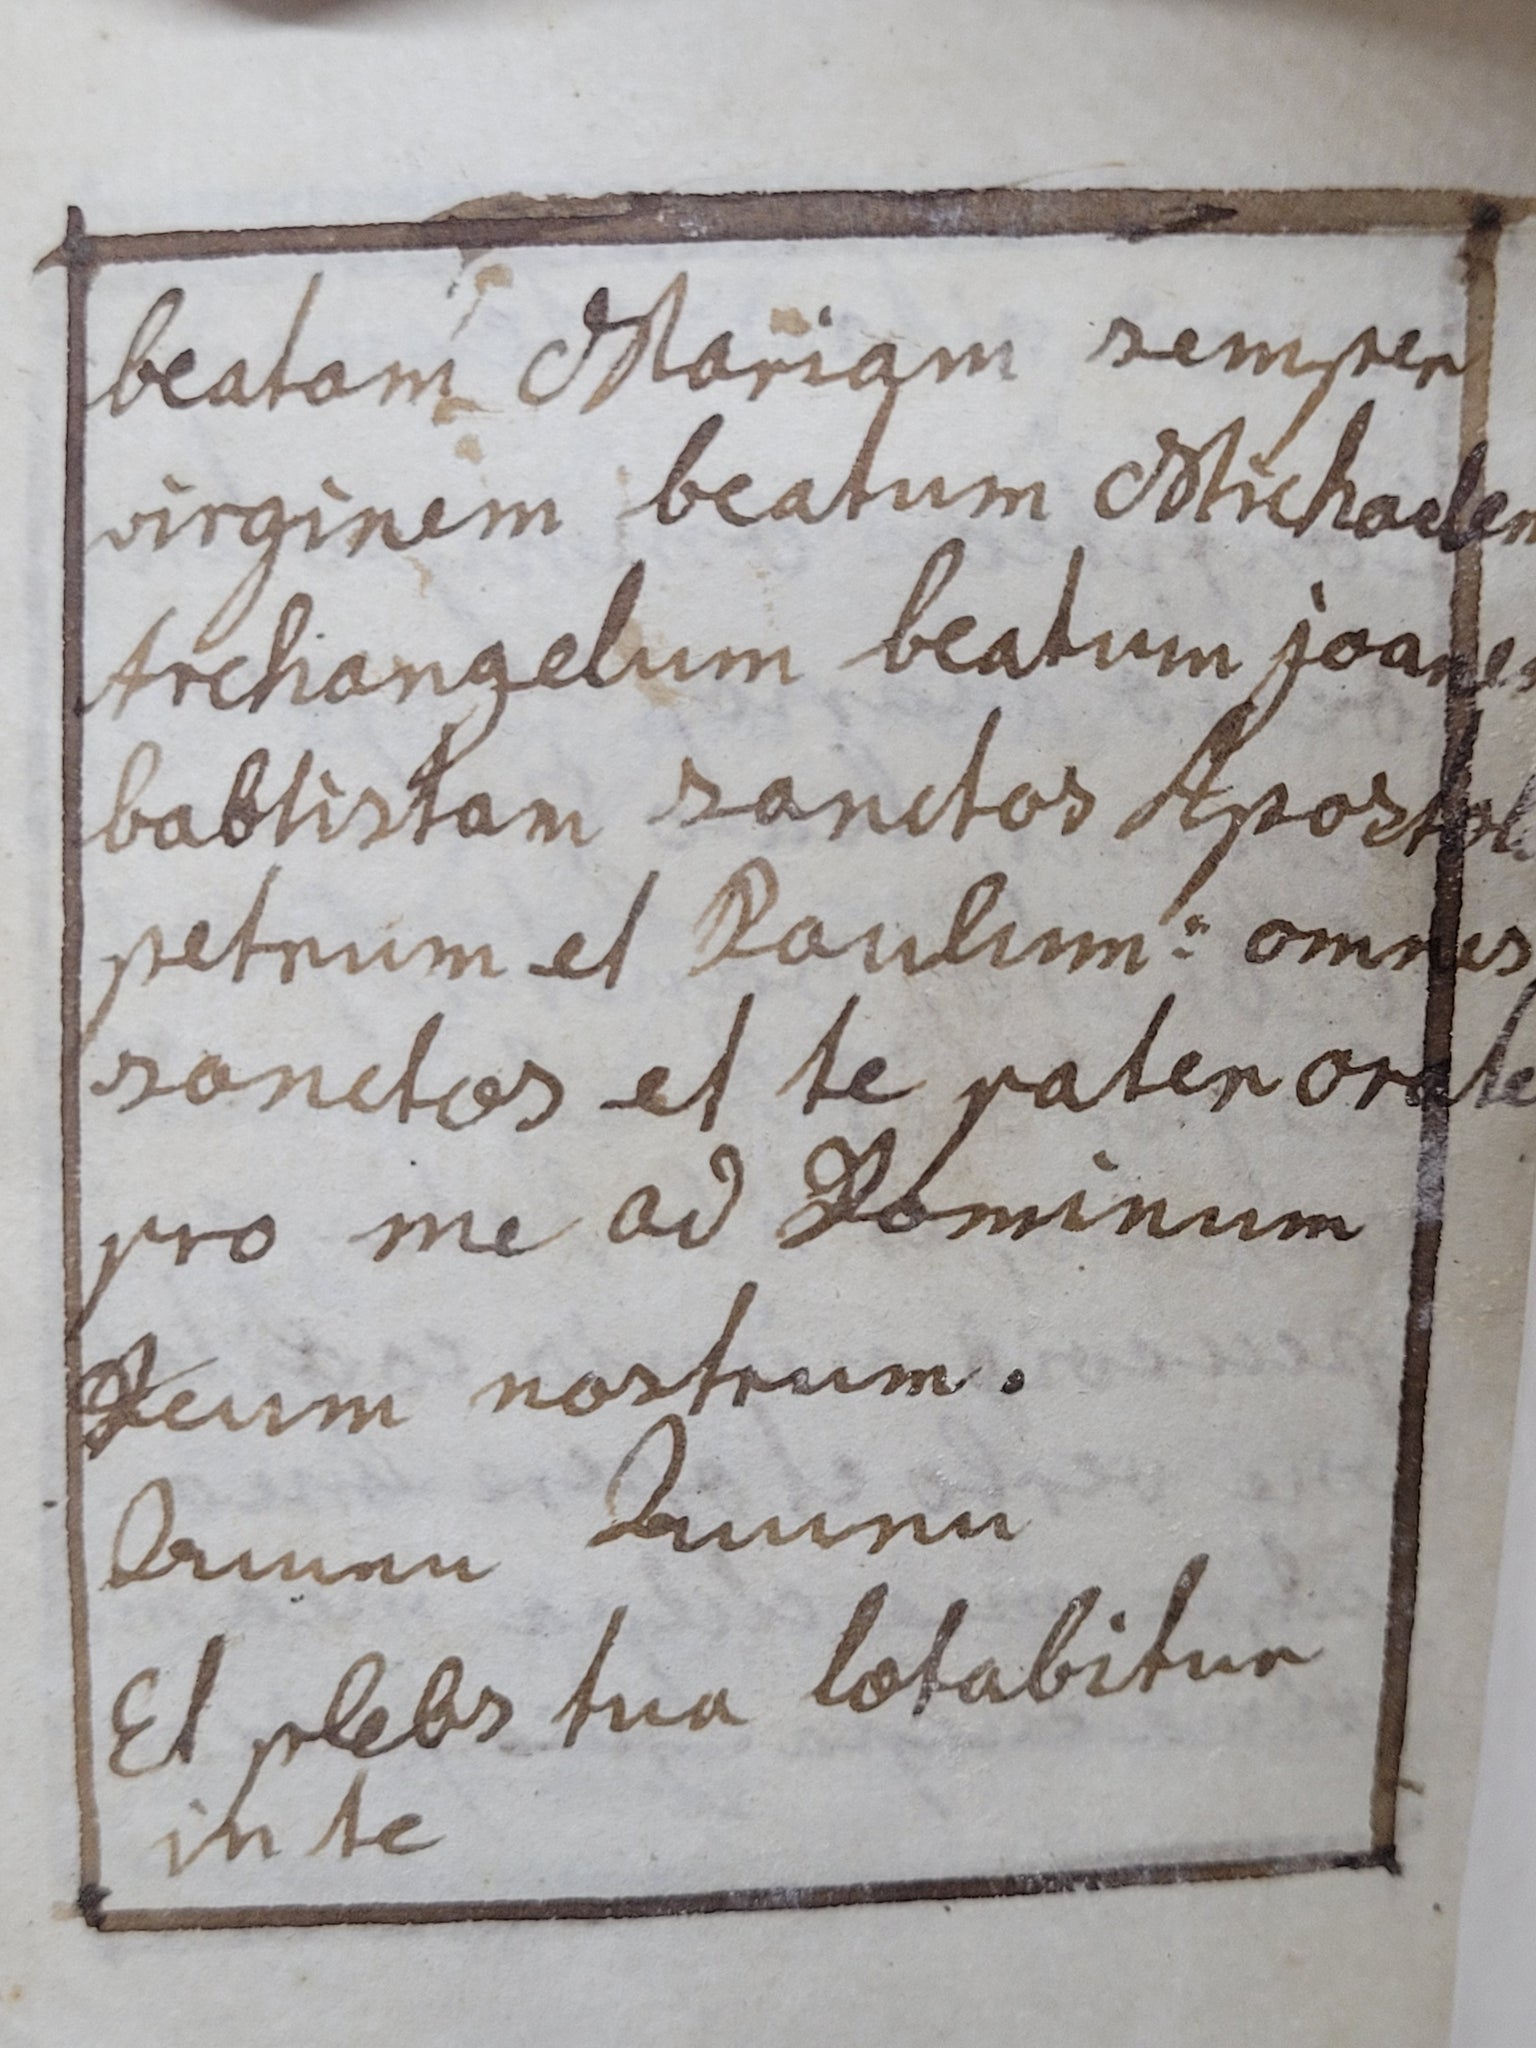 beatam Mariam semper
virginem beatum Michaelem
Archangelum beatum joanem
babtistam sanctos Apostol
petrum et Paulum: omnes
sanctos et te pater orate
pro me ad Dominum
Deum nostrum.
Et plebs tua lætabitur
in te